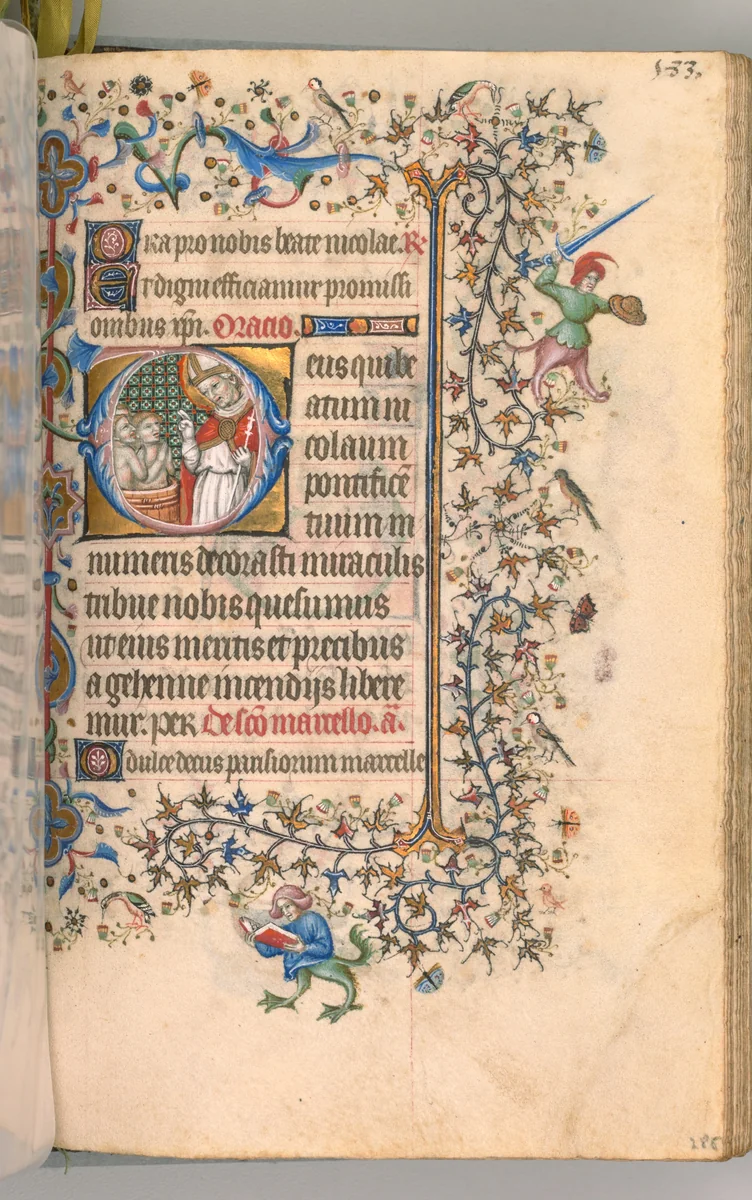 133.
Ora pro nobis beate nicolae. R.
Et digni efficiamur promissi
onibus xpi. Oracio.
Deus qui be
atum ni
colaum
pontificē
tuum in
numeris decorasti miraculis
tribue nobis quesumus
ut eius meritis et precibus
a gehenne incendijs libere
mur. per De sco marcello. a.
O dulce decus parisiorum marcelle